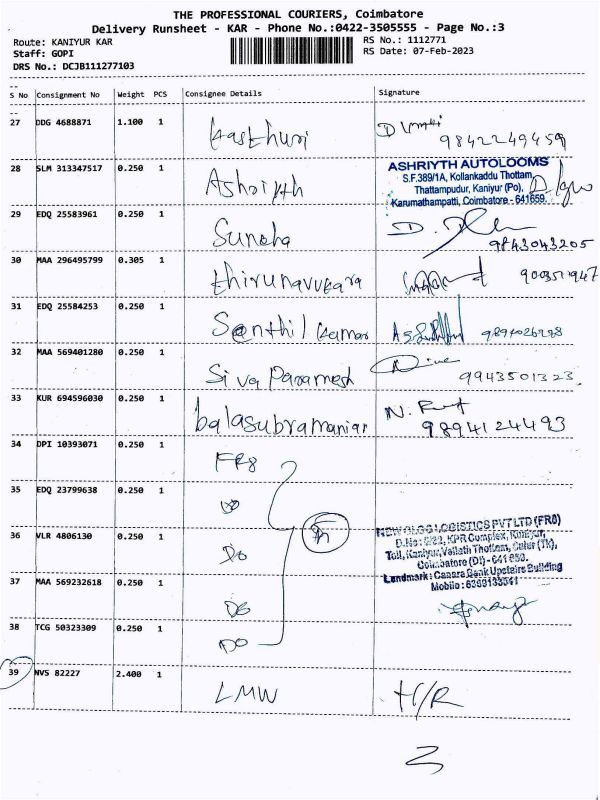 THE PROFESSIONAL COURIERS, Coimbatore
Delivery Runsheet - KAR - Phone No.:0422-3505555 - Page No.:3
Route: KANIYUR KAR
RS No.: 1112771
Staff: GOPI
RS Date: 07-Feb-2023
DRS No.: DCJB111277103
S No Consignment No Weight PCS Consignee Details Signature
27 DDG 4688871 1.100 1 Kasthuri
9842249459
28 SLM 313347517 0.250 1 Ashriyth
ASHRIYTH AUTOLOOMS
S.F.389/1A, Kollankaddu Thottam,
Thattampudur, Kaniyur (Po),
Karumathampatti, Coimbatore - 641659.
29 EDQ 25583961 0.250 1 Suneha
9843043205
30 MAA 296495799 0.305 1 thirunavukara
31 EDQ 25584253 0.250 1 Senthil Kumar
32 MAA 569401280 0.250 1 Siva Paramesh
9943501323
33 KUR 694596030 0.250 1 balasubramanian
9894124493
34 DPI 10393071 0.250 1 FR8
35 EDQ 23799638 0.250 1 Do
36 VLR 4806130 0.250 1 Do
37 MAA 569232618 0.250 1 Do
38 TCG 50323309 0.250 1 Do
LOGISTICS PVT LTD (FR8)
KPR Complex, Kaniyur,
Toll, Kaniyur, Vailath Thottam, Sulur (TK),
Coimbatore (DI) - 641 659.
Landmark : Canara Bank Upstairs Building
Mobile :
39 NVS 82227 2.400 1 LMW H/R
3